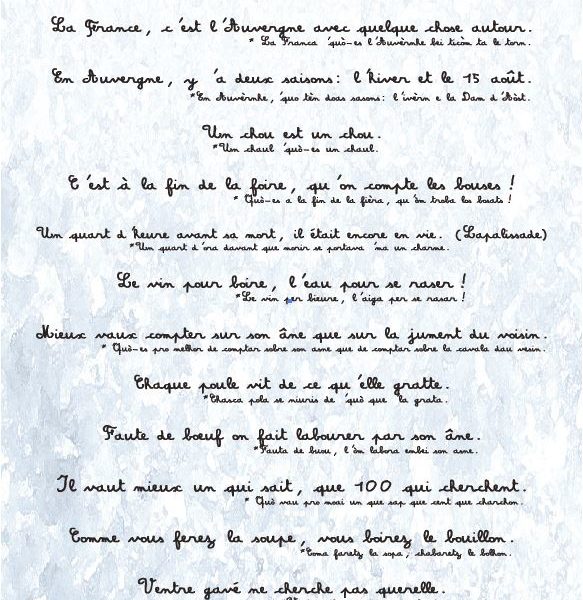 La France, c'est l'Auvergne avec quelque chose autour.
* La Franca 'quò-es l'Auvèrnhe bei ticòm ta le torn.
En Auvergne, y 'a deux saisons: l'hiver et le 15 août.
*En Auvèrnhe, 'quo tèn doas sasons: l'ivèrn e la Dam d'Aòst.
Um chou est un chou.
*Um chaul 'quò-es un chaul.
C'est à la fin de la foire, qu'on compte les bouses !
* Quò-es a la fin de la fièra, qu'òm troba los boiats !
Un quart d'heure avant sa mort, il était encore en vie. (Lapalissade)
*Um quart d'ora davant que morir se portava 'ma un charme.
Le vin pour boire, l'eau pour se raser !
*Le vin per bieure, l'aiga per se rasar !
Mieux vaux compter sur son âne que sur la jument du voisin.
* Quò-es pro melhor de comptar sobre son asne que de comptar sobre la cavala dau vesin.
Chaque poule vit de ce qu'elle gratte.
*Chasca pola se niuris de 'quò que la grata.
Faute de bœuf on fait labourer par son âne.
*Fauta de buou, l'òm labora embei son asne.
Il vaut mieux un qui sait, que 100 qui cherchent.
* Quò vau pro mai un que sap que cent que cherchon.
Comme vous ferez la soupe, vous boirez le bouillon.
*Coma faretz la sopa, chabaretz le bolhon.
Ventre gavé ne cherche pas querelle.